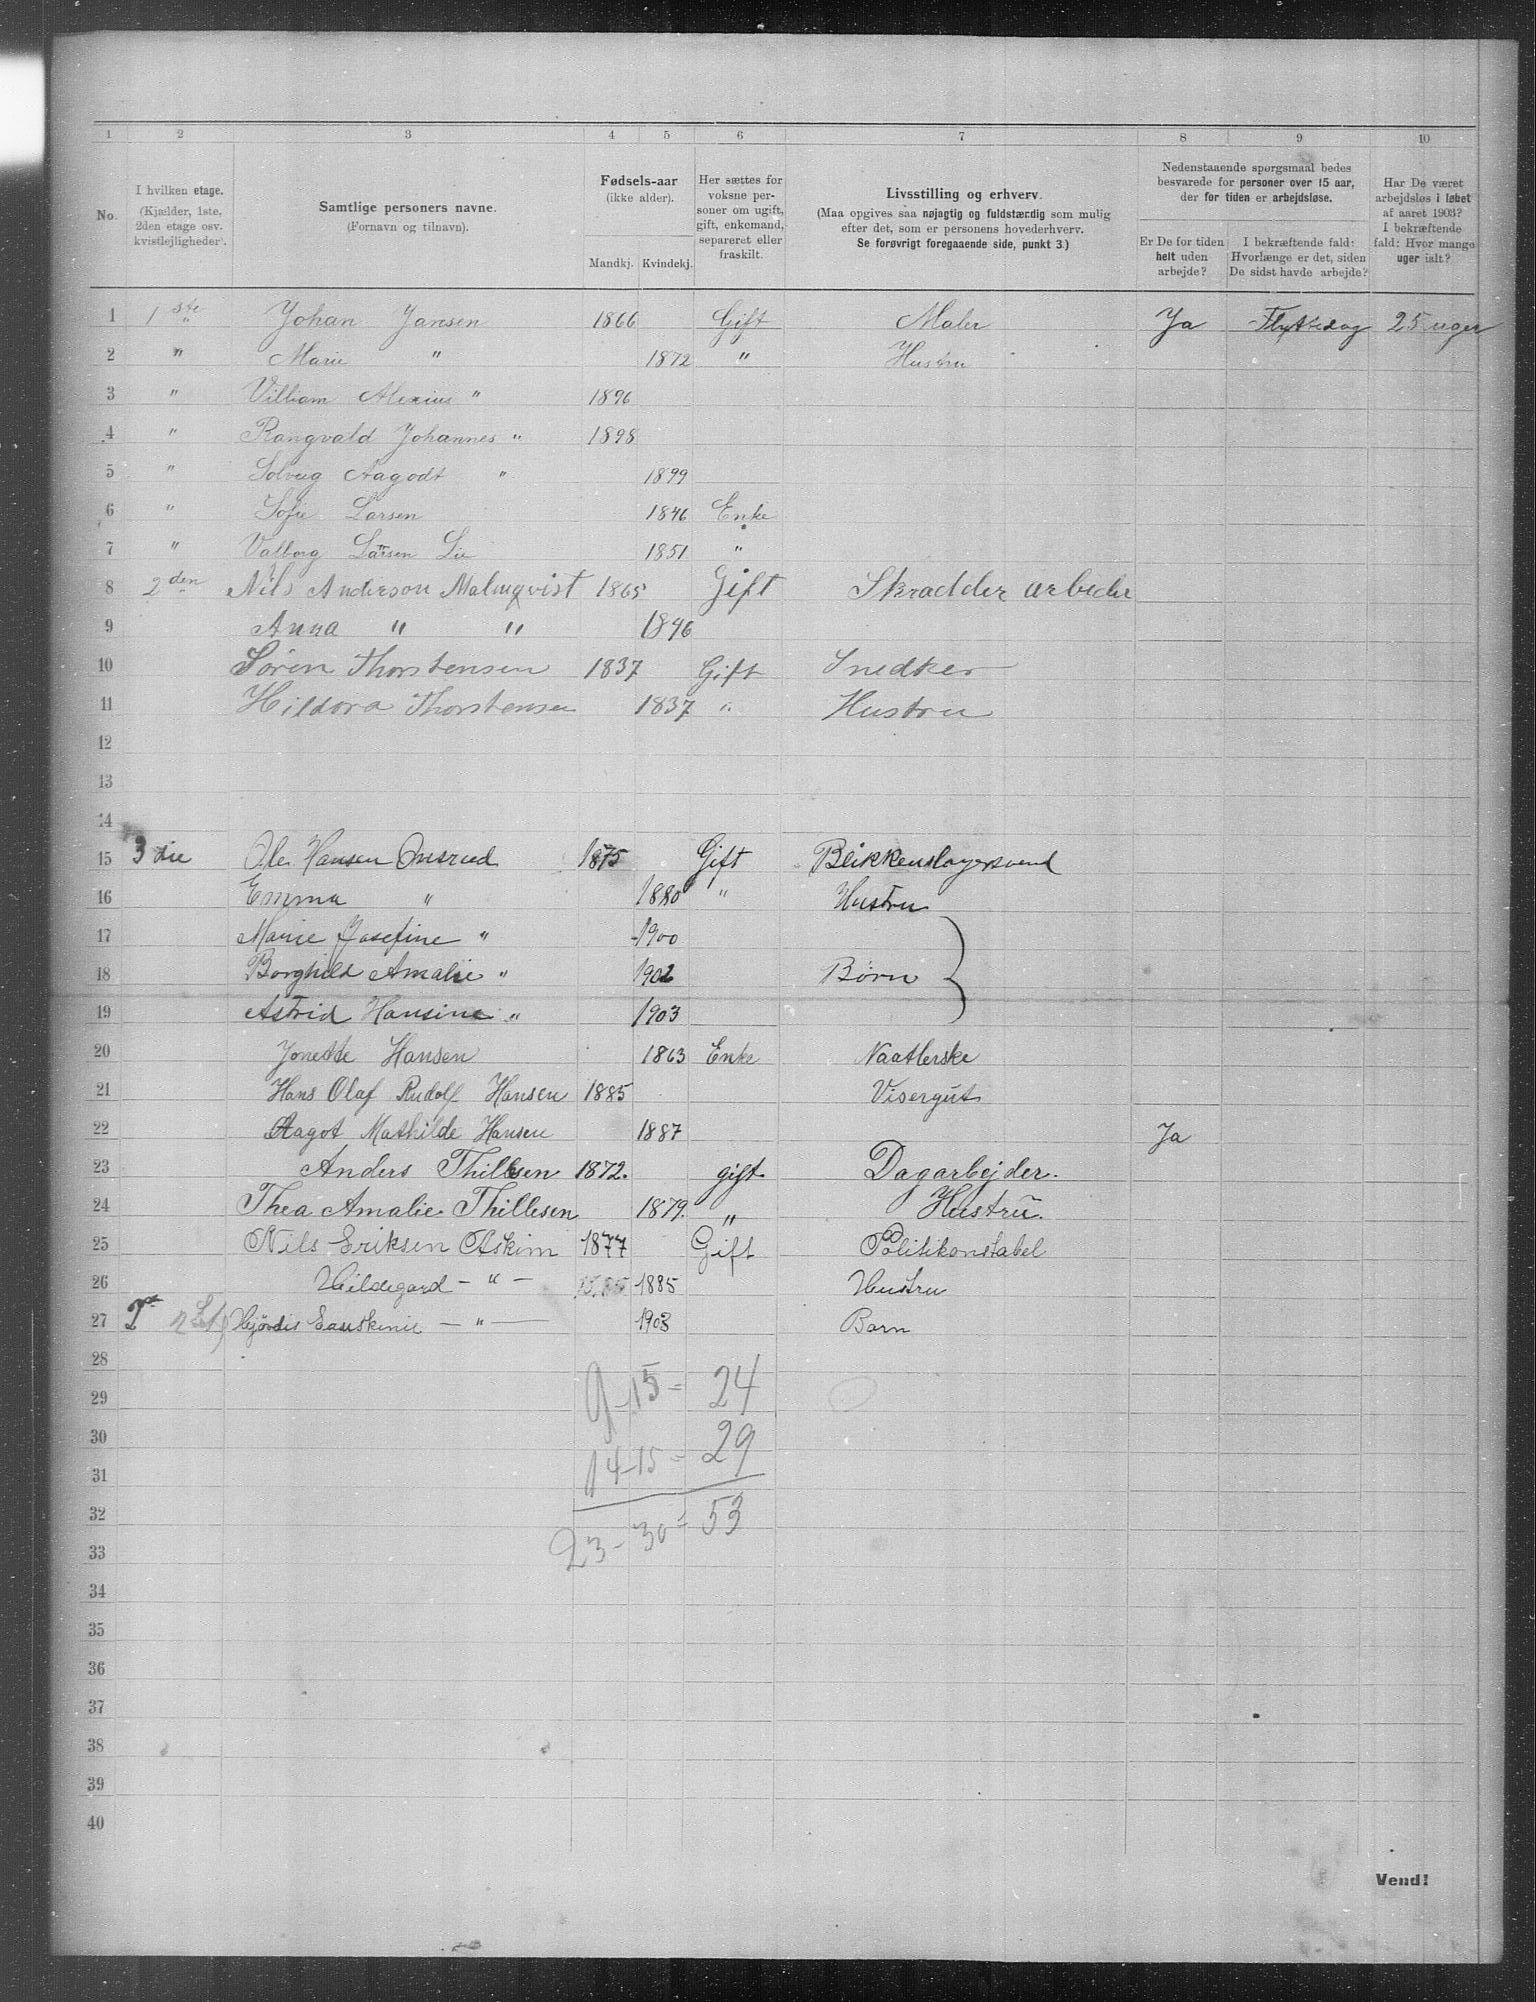 1 2 3 4 5 6 7 8 9 10
No.
I hvilken etage.
(Kjælder, 1ste,
2den etage osv.
kvistlejligheder).
Samtlige personers navne.
(Fornavn og tilnavn).
Fødsels-aar
(ikke alder).
Mandkj. Kvindekj.
Her sættes for
voksne per-
soner om ugift,
gift, enkemand,
separeret eller
fraskilt.
Livsstilling og erhverv.
(Maa opgives saa nøjagtig og fuldstærdig som mulig
efter det, som er personens hovederhverv.
Se forøvrigt foregaaende side, punkt 3.)
Nedenstaaende spørgsmaal bedes
besvarede for personer over 15 aar,
der for tiden er arbejdsløse.
Er De for tiden
helt uden
arbejde?
I bekræftende fald:
Hvorlænge er det, siden
De sidst havde arbejde?
Har De været
arbejdsløs i løbet
af aaret 1903?
I bekræftende
fald: Hvor mange
uger ialt?
1 1ste Johan Jansen 1866 Gift Maler Ja Flyttedag 25 uger
2 " Marie " 1872 " Hustru
3 " Villiam Alexius " 1896
4 " Rangvald Johannes " 1898
5 " Solveig Aagodt " 1899
6 " Sofie Larsen 1846 Enke
7 " Valborg Larsen Lie 1851 "
8 2den Nils Anderson Malmqvist 1865 Gift Skradder arbeder
9 Anna " " 1846
10 Søren Thorstensen 1837 Gift Snedker
11 Hildora Thorstensen 1837 " Hustru
12
13
14
15 3die Ole Hansen Onsrud 1875 Gift Blikkenslagersvend
16 Emma " 1880 " Hustru
17 Marie Josefine " 1900
18 Borghild Amalie " 1902 Børn
19 Astrid Hansine " 1903
20 Jonette Hansen 1863 Enke Naatlerske
21 Hans Olaf Rudolf Hansen 1885 Visergut
22 Aagot Mathilde Hansen 1887 Ja
23 Anders Thillesen 1872. gift Dagarbejder.
24 Thea Amalie Thillesen 1879. " Hustru.
25 Nils Eriksen Askim 1877 Gift Politikonstabel
26 Hildegard - " - 1885 Hustru
27 Hjørdis - " - 1903 Barn
28
29 9-15 = 24
30
31 14-15 = 29
32
33 23-30 = 53
34
35
36
37
38
39
40
Vend!